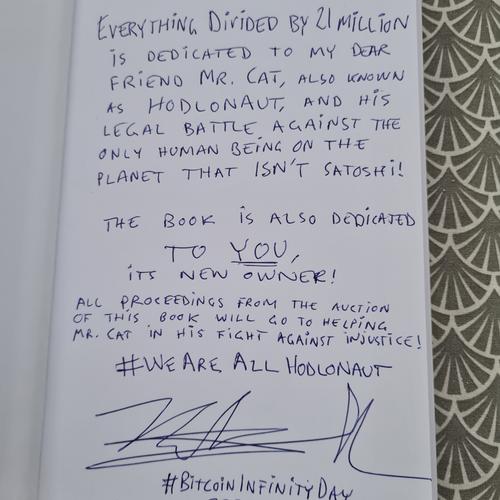 EVERYTHING DIVIDED BY 21 MILLION
IS DEDICATED TO MY DEAR
FRIEND MR. CAT, ALSO KNOWN
AS HODLONAUT, AND HIS
LEGAL BATTLE AGAINST THE
ONLY HUMAN BEING ON THE
PLANET THAT ISN'T SATOSHI!
THE BOOK IS ALSO DEDICATED
TO YOU,
ITS NEW OWNER!
ALL PROCEEDINGS FROM THE AUCTION
OF THIS BOOK WILL GO TO HELPING
MR. CAT IN HIS FIGHT AGAINST INJUSTICE!
#WE ARE ALL HODLONAUT
#BITCOIN INFINITY DAY